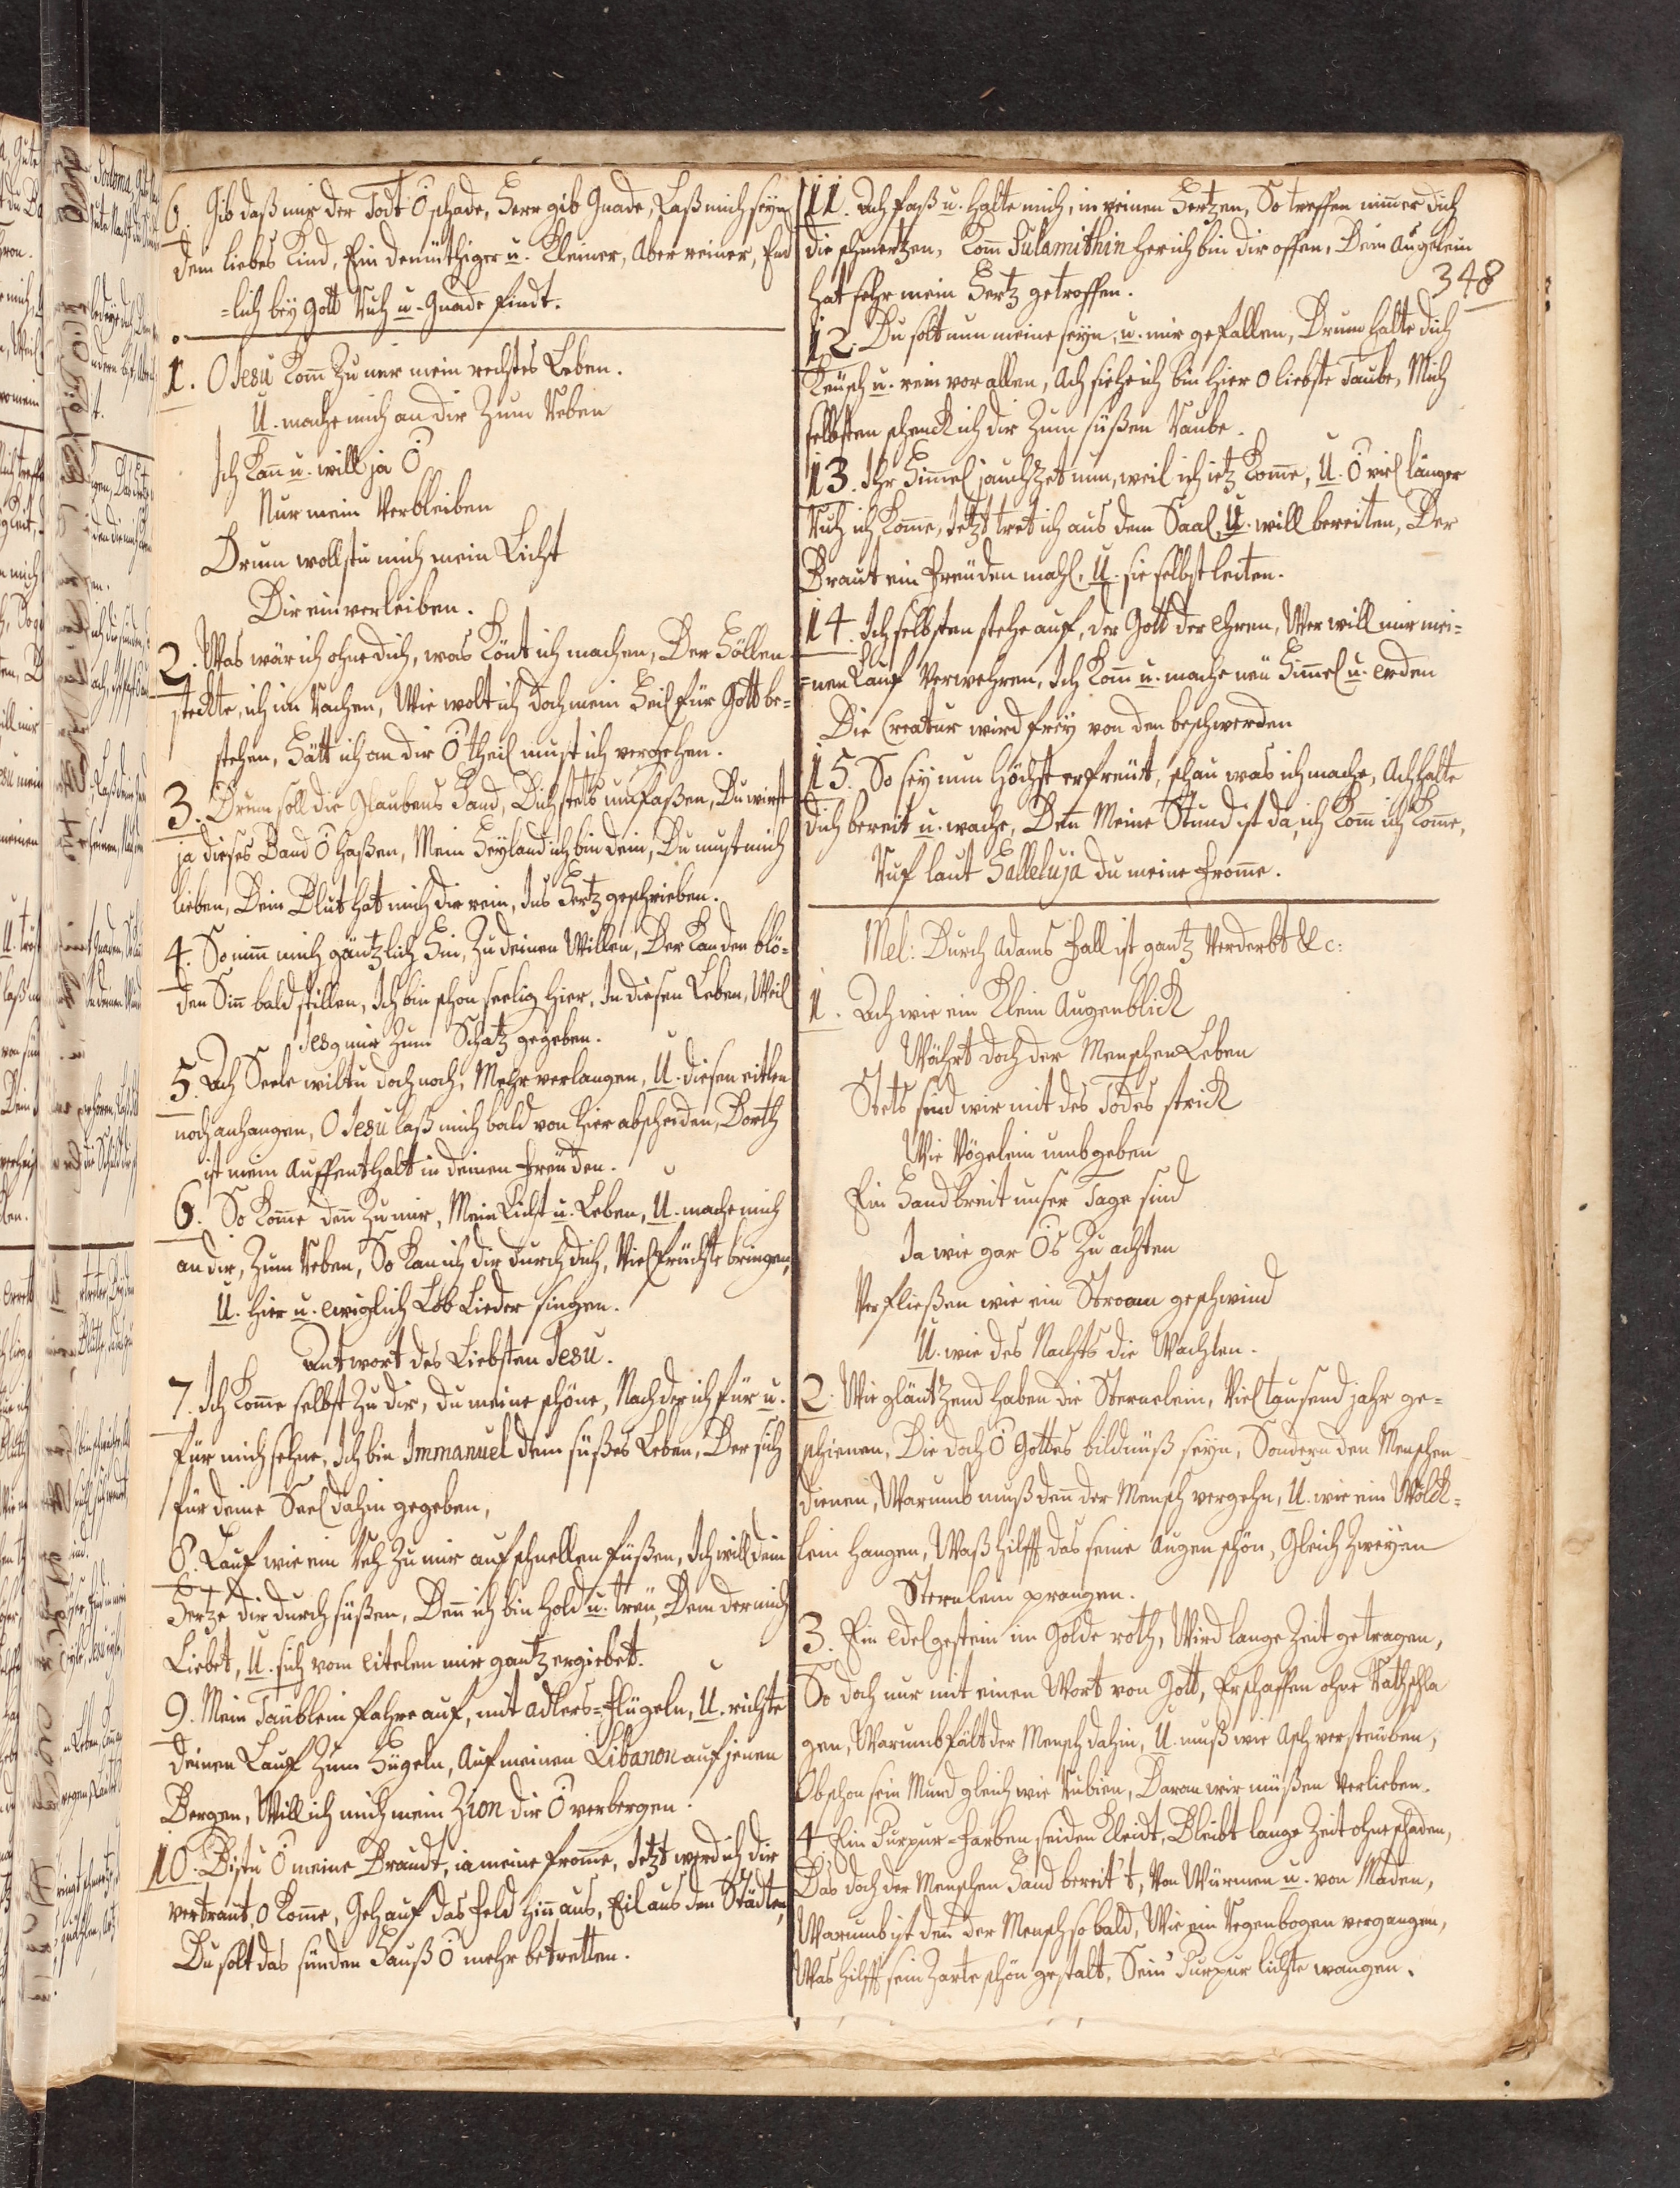 6. Gib daß mir der Todt O schade, Herr gib Gnade, Laß mich seyn
dem liebes Kind, Ein demüthiger u. Kleiner, Aber reiner, End
=lich bey Gott Ruh u. Gnade findt.
1. O Jesu Kom̄ Zu mir mein rechtes Leben.
U. mache mich an dir Zum Reben
Ich Kan̄ u. will ja O
Nur mein Verbleiben
Drum wollstu mich mein Licht
Dir einverleiben.
2. Was wär ich ohne dich, was Könt ich machen, Der Höllen
steckte, ich im Rachen, Wie wolt ich doch mein Heil für Gott be=
stehen, Hätt ich an dir O theil must ich vergehen.
3. Drum soll die Glaubens Hand, Dich stets umfaßen, Du wirst
ja dieses Band O haßen, Mein Heyland ich bin dein, Du must mich
lieben, Dein Blut hat mich dir rein, Ins Hertz geschrieben.
4. So nim̄ mich gäntzlich Hin, Zu deinen Willen, Der Kan den blö=
den Sin̄ bald stillen, Ich bin schon seelig hier, In diesen Leben, Weil
Jesq mir Zum Schatz gegeben.
5. Ach Seele wiltu doch noch, Mehr verlangen, U. diesen eitlen
noch anhangen, O Jesu laß mich bald von hier abscheiden, Dorth
ist mein Auffenthalt in deinen Freuden.
6. So Kom̄e den̄ Zu mir, Mein Licht u. Leben, U. mache mich
an dir, Zum Reben, So Kan ich dir durch dich, Viel Früchte bringen,
U. hier u. ewiglich Lob Lieder singen.
Antwort des Liebsten Jesu.
7. Ich Kom̄e selbst Zu dir, du meine schöne, Nach der ich für u.
für mich sehne, Ich bin Immanuel dein süßes Leben, Der sich
für deine Seel dahin gegeben,
8. Lauf wie ein Reh Zu mir auf schnellen füßen, Ich will dein
Hertze dir durch süßen, Den̄ ich bin hold u. treu, Dem der mich
Liebet, U. sich vom Eitelen mir gantz ergiebet.
9. Mein Täublein fahre auf, mit Adlers=Flügeln, U. richte
deinen Lauf Zum Hügeln, Auf meinen Libanon auf jenen
Bergen, Will ich mich mein Zion dir O verbergen.
10. Bistu O meine Braudt, ia meine from̄e, Jetzt werd ich dir
vertraut, O Kom̄e, Geh auf das Feld hin̄ aus, Eil aus den Städten,
Du solt das sünden Hauß O mehr betretten.
11. Ach faß u. halte mich, in deinen Hertzen, So treffen nim̄er dich
die schmertzen, Kom̄ Sulamithin her ich bin dir offen, Dein Augelein
348
hat sehr mein Hertz getroffen.
12. Du solt nun meine seyn, u. mir gefallen, Drum halte dich
Keusch u. rein vor allen, Ach siehe ich bin hier O liebste Taube, Mich
selbsten schenck ich dir Zum süßen Raube.
13. Ihr Him̄el jauchzet nun, weil ich ietz Kom̄e, U. O viel länger
Ruh ich, Kom̄e, Jetzt tret ich aus dem Saal, U. will bereiten, Der
Braut ein Freuden mahl, U. sie selbst leiten.
14. Ich selbsten stehe auf, der Gott der Ehren, Wer will mir mei=
=nen Lauf Verwehren, Ich Kom̄ u. mache neu Him̄el u. Erden
Die Creatur wird frey von den beschwerden
15. So sey nun höchst erfreut, schau was ich mache, Ach halte
dich bereit u. wache, Den̄ Meine Stund ist da, ich Kom̄ ich Kom̄e,
Ruf laut Halleluja du meine From̄e.
Mel: Durch Adams Fall ist gantz Verderbt &c:
1. Ach wie ein Klein Augenblick
Währt doch der Menschen Leben
Stets sind wir mit des Todes strick
Wie Vögelein umbgeben
Ein Handbreit unser Tage sind
Ja wie gar Os Zu achten
Verfließen wie ein Stroom geschwind
U. wie des Nachts die Wachten.
2. Wie gläntzend haben die Sternelein, Viel tausend jahr ge=
schienen, Die doch O Gottes bildnüß seyn, Sondern den Menschen
dienen, Warumb muß den̄ der Mensch vergehn, U. wie ein Wölck=
lein hangen, Waß hilfft das seine Augen schön, Gleich Zweyen
Sternlein prangen.
3. Ein Edelgestein im Golde roth, Wird lange Zeit getragen,
So doch nur mit einen Wort von Gott, Erschaffen ohne Rathschla
gen, Warumb fält der Mensch dahin, U. muß wie Asch versteuben,
Obschon sein Mund gleich wie Rubien, Daran wir müßen Verlieben.
4. Ein Purpur=Farben seiden Kleidt, Bleibt lange Zeit ohne schaden,
Das doch der Menschen Hand bereit't, Von Würmen u. von Maden,
Warumb ist den̄ der Mensch so bald, Wie ein Regenbogen vergangen,
Was hilfft sein Zarte schön gestalt, Sein Purpur lichte wangen.